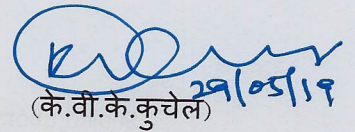 29/05/19
(के.वी.के.कुचेल)